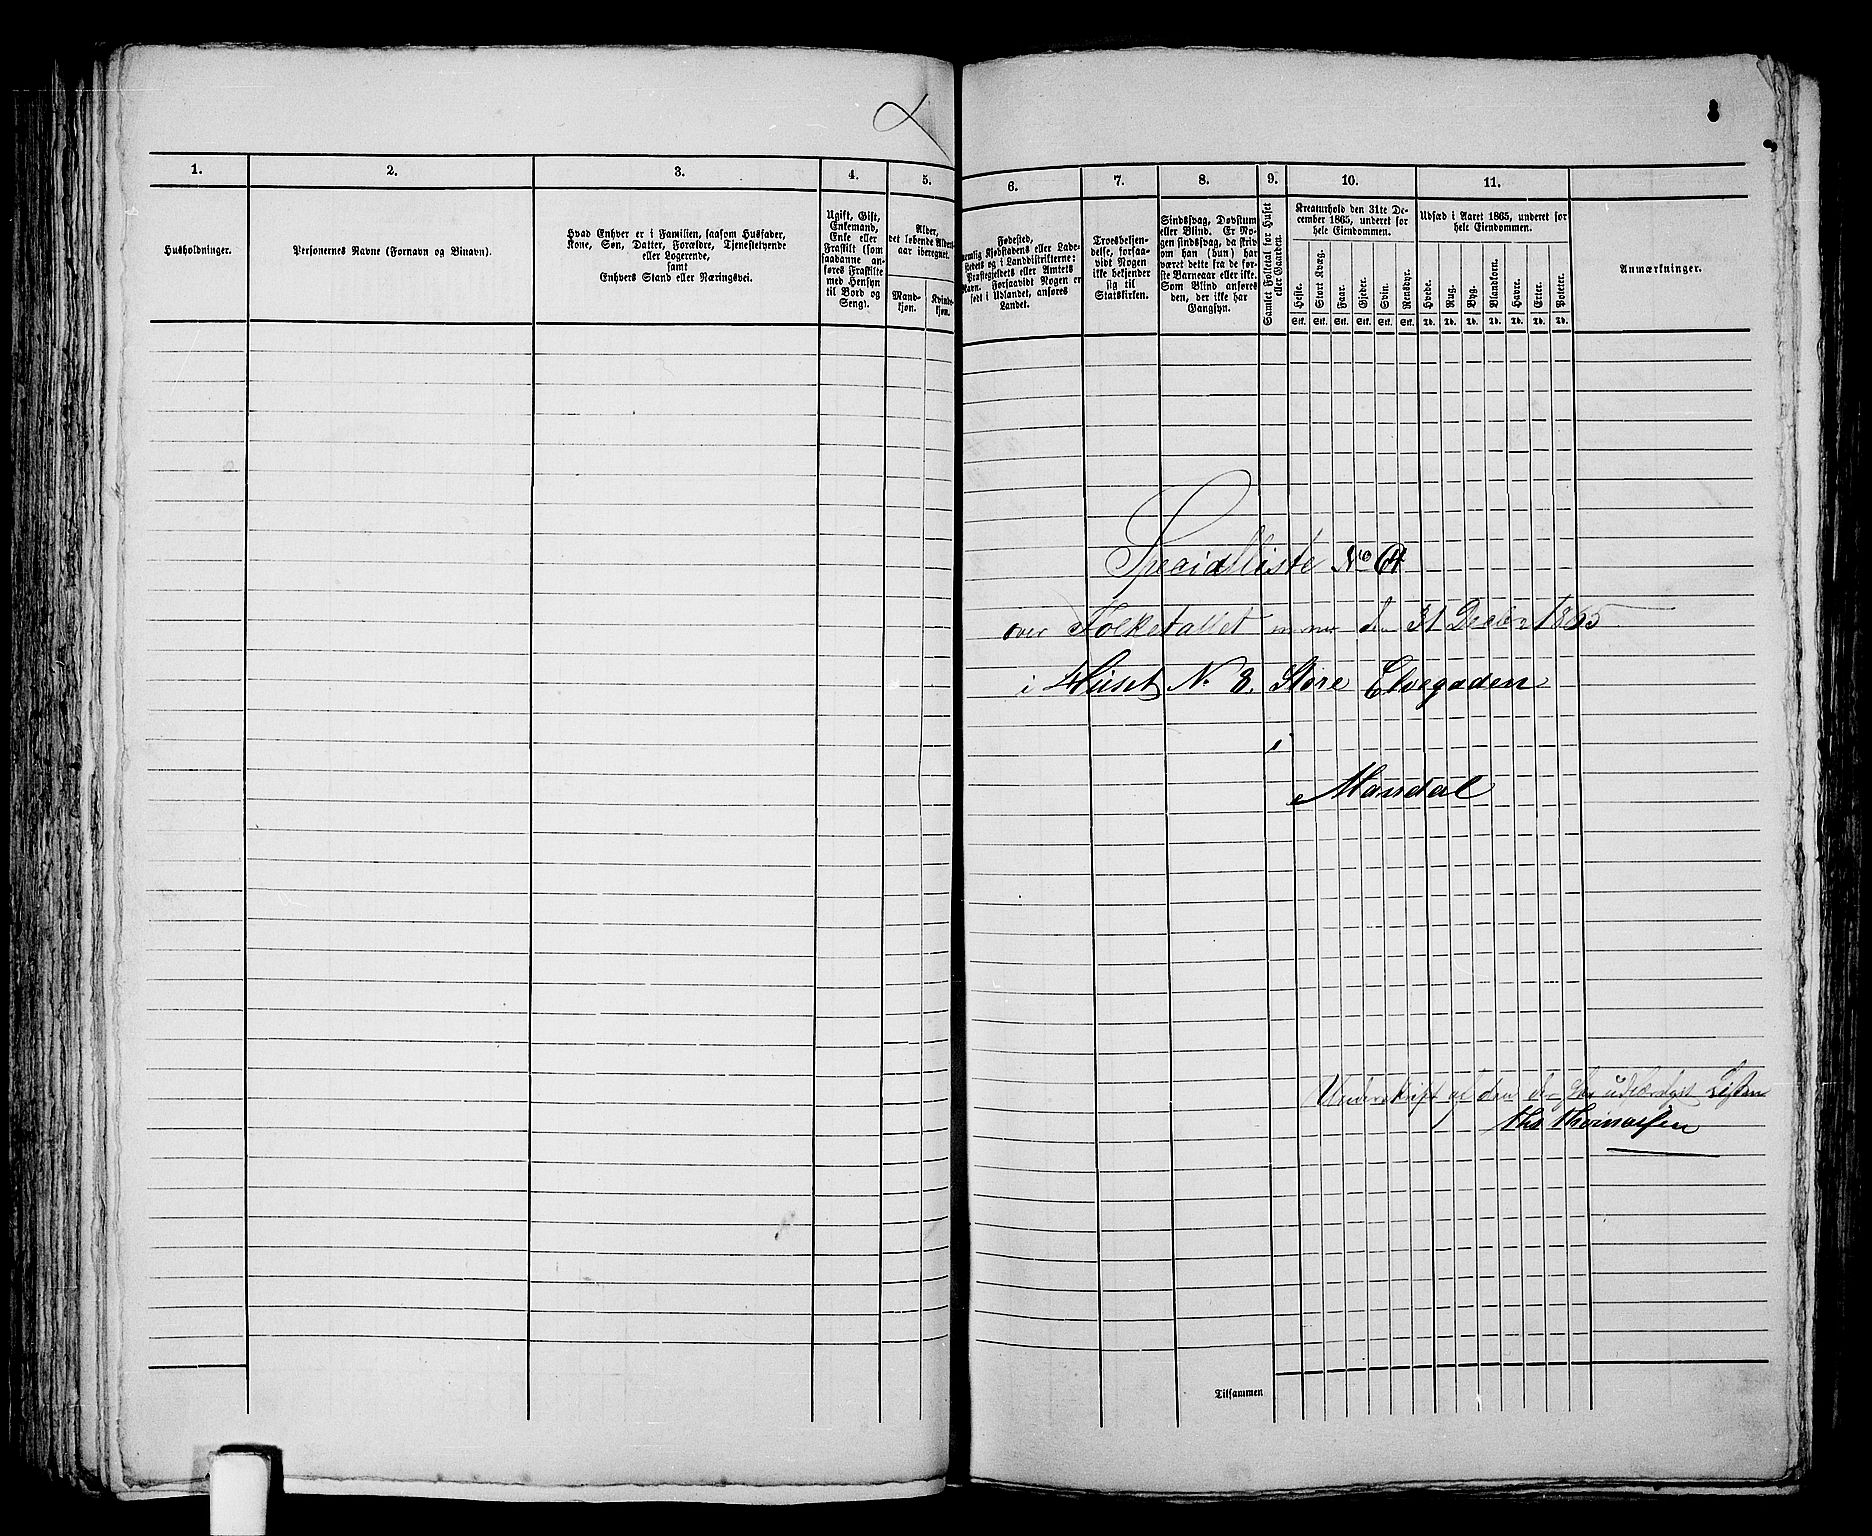 1.
2.
3.
4.
5.
Husholdninger.
Personernes Navne (Fornavn og Binavn).
Hvad Enhver er i Familien, saasom Husfader,
Kone, Søn, Datter, Forældre, Tjenestetyende
eller Logerende,
samt
Enhvers Stand eller Næringsvei.
Ugift, Gift,
Enkemand,
Enke eller
Fraskilt (som
saadanne an-
føres Fraskilte
med Hensyn
til Bord og
Seng).
Alder,
det løbende Alders-
aar iberegnet.
Mand-
kjøn.
Kvinde-
kjøn.
6.
7.
8.
9.
10.
11.
Fødested,
nemlig Kjøbstadens eller Lade-
stedets og i Landdistrikterne:
Præstegjeldets eller Amtets
Navn. Forsaavidt Nogen er
født i Udlandet, anføres
Landet.
Troesbekjen-
delse, forsaa-
vidt Nogen
ikke bekjender
sig til
Statskirken.
Sindssvag, Døvstum
eller Blind. Er No-
gen sindssvag, da skriv
om han (hun) har
været dette fra de før-
ste Barneaar eller ikke.
Som Blind anføres
den, der ikke har
Gangsyn.
Samlet Folketal for Huset
eller Gaarden.
Kreaturhold den 31te De-
cember 1865, underet for
hele Eiendommen.
Heste.
Stort Kvæg.
Faar.
Gjeder.
Svin.
Rensdyr.
Stk. Stk. Stk. Stk. Stk. Stk.
Udsæd i Aaret 1865, underet for
hele Eiendommen.
Hvede.
Rug.
Byg.
Blandkorn.
Havre.
Erter.
Poteter.
Td. Td. Td. Td. Td. Td. Td.
Anmærkninger.
Specialliste No 64
over Folketallet den 31 Decbr 1865
i Huset N. 8. Store Elvegaden
i
Mandal
Underskrift af den der har udfærdiget Listen
Ths Thomassen
Tilsammen